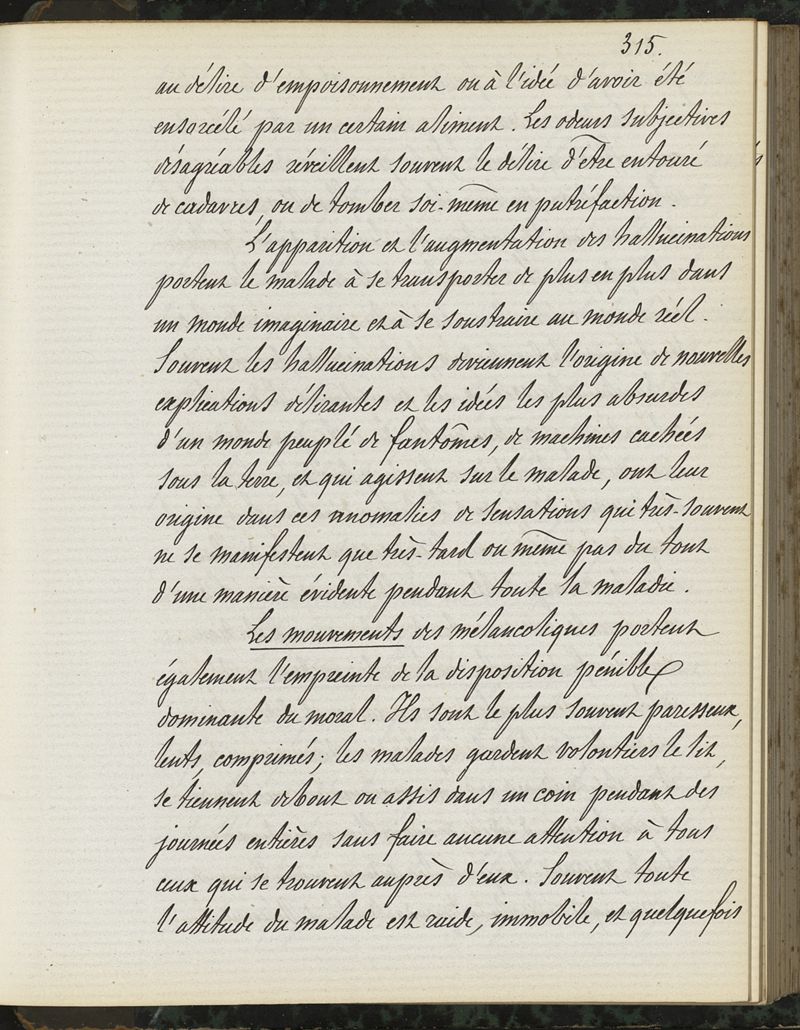 315.
au délire d'empoisonnement ou à l'idée d'avoir été
ensorcélé par un certain aliment. Les odeurs subjectives
désagréables réveillent souvent le délire d'être entouré
de cadavres, ou de tomber soi-même en putréfaction.
L'apparition et l'augmentation des hallucinations
portent le malade à se transporter de plus en plus dans
un monde imaginaire et à se soustraire au monde réel.
Souvent les hallucinations deviennent l'origine de nouvelles
explications délirantes et les idées les plus absurdes
d'un monde peuplé de fantômes, de machines cachées
sous la terre, et qui agissent sur le malade, ont leur
origine dans ces anomalies de sensations qui très-souvent
ne se manifestent que très-tard ou même pas du tout
d'une manière évidente pendant toute la maladie.
Les mouvements des mélancoliques portent
également l'empreinte de la disposition pénible
dominante du moral. Ils sont le plus souvent paresseux,
lents, comprimés; les malades gardent volontiers le lit,
se tiennent debout ou assis dans un coin pendant des
journées entières sans faire aucune attention à tous
ceux qui se trouvent auprès d'eux. Souvent toute
l'attitude du malade est raide, immobile, et quelquefois